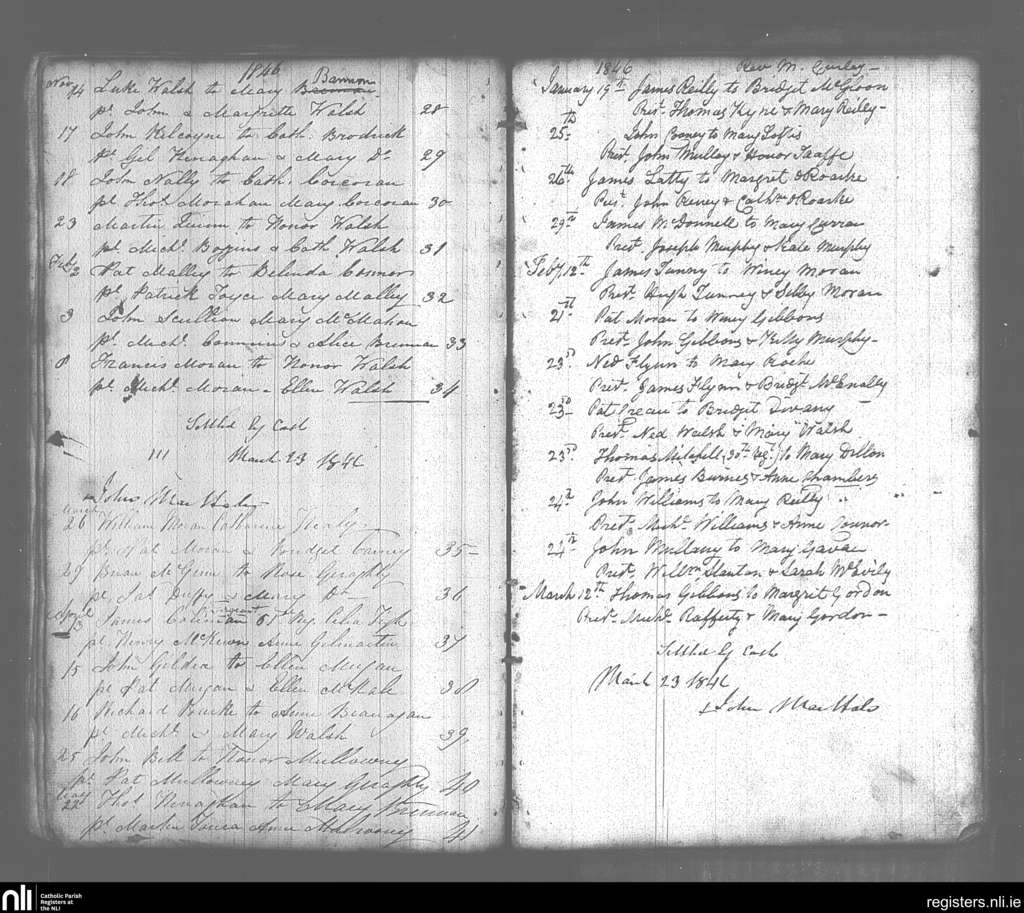 1846
Nov 24 Luke Walsh to Mary Bannon
pt John & Margrette Walsh 28
17 John Kilcoyne to Cath. Brodrick
pt Gel Henaghan & Mary Do 29
18 John Nally to Cath. Corcoran
pt Thos Morahan Mary Corcoran 30
23 Martin Quinn to Honor Walsh
pt Michl Boggins & Cath Walsh 31
Feb 3 Pat Malley to Belinda Connor
pt Patrick Joyce Mary Malley 32
3 John Scullian Mary McMahon
pt Michl & Alice Brennan 33
8 Francis Moran to Honor Walsh
pt Michl Moran & Ellen Walsh 34
Settled by Cash
March 23 1846
John MacHale
26 William Moran Catharine Healy
pt Pat Moran & Bridget 35
29 Brian McGinn to Rose Geraghty
pt Pat Duffy & Mary Do 36
April 3 James Sergeant 65 Rg. Celia Tighe
pt Henry McKeon Anne Gilmartin 37
15 John Gildea to Ellen Mugan
pt Pat Mugan & Ellen McHale 38
16 Richard Bourke to Anne Branagan
pt Michl & Mary Walsh 39
25 John Bell to Honor Mullowney
pt Pat Mullowney Mary Geraghty 40
May 22 Thos Henaghan to Mary Brennan
pt Martin Anne Mulrooney 41
1846 Rev. M. Curley
January 19th James Reilly to Bridget McGloon
Prst Thomas Kyne & Mary Reilly
25th John Cooney to Mary Loftis
Prst. John Mulloy & Honor Taaffe
26th James Latty to Margret ORoarke
Prst. John Reney & Cathn ORoarke
29th James McDonnell to Mary Curran
Prst. Joseph Murphy & Kate Murphy
Feby 12th James Tunny to Winey Moran
Prst. Hugh Tunney & Sibby Moran
21st Pat Moran to Winy Gibbons
Prst. John Gibbons & Kitty Murphy
23rd Ned Flynn to Mary Roche
Prst. James Flynn & Bridgt McEnally
23rd Pat to Bridget Divany
Prst. Ned Walsh & Mary Walsh
23rd Thomas Mitchell (30th Rg.) to Mary Dillon
Prst James Burnes & Anne Chambers
24th John Williams to Mary Reilly
Prst. Michl Williams & Anne Connor
24th John Mullany to Mary Gavan
Prst. Willm Stanton & Sarah McEvily
March 12th Thomas Gibbons to Margrit Gordon
Prst. Michl Rafferty & Mary Gordon
Settled by Cash
March 23 1846
+John MacHale
nli
Catholic Parish
Registers at
the NLI
registers.nli.ie